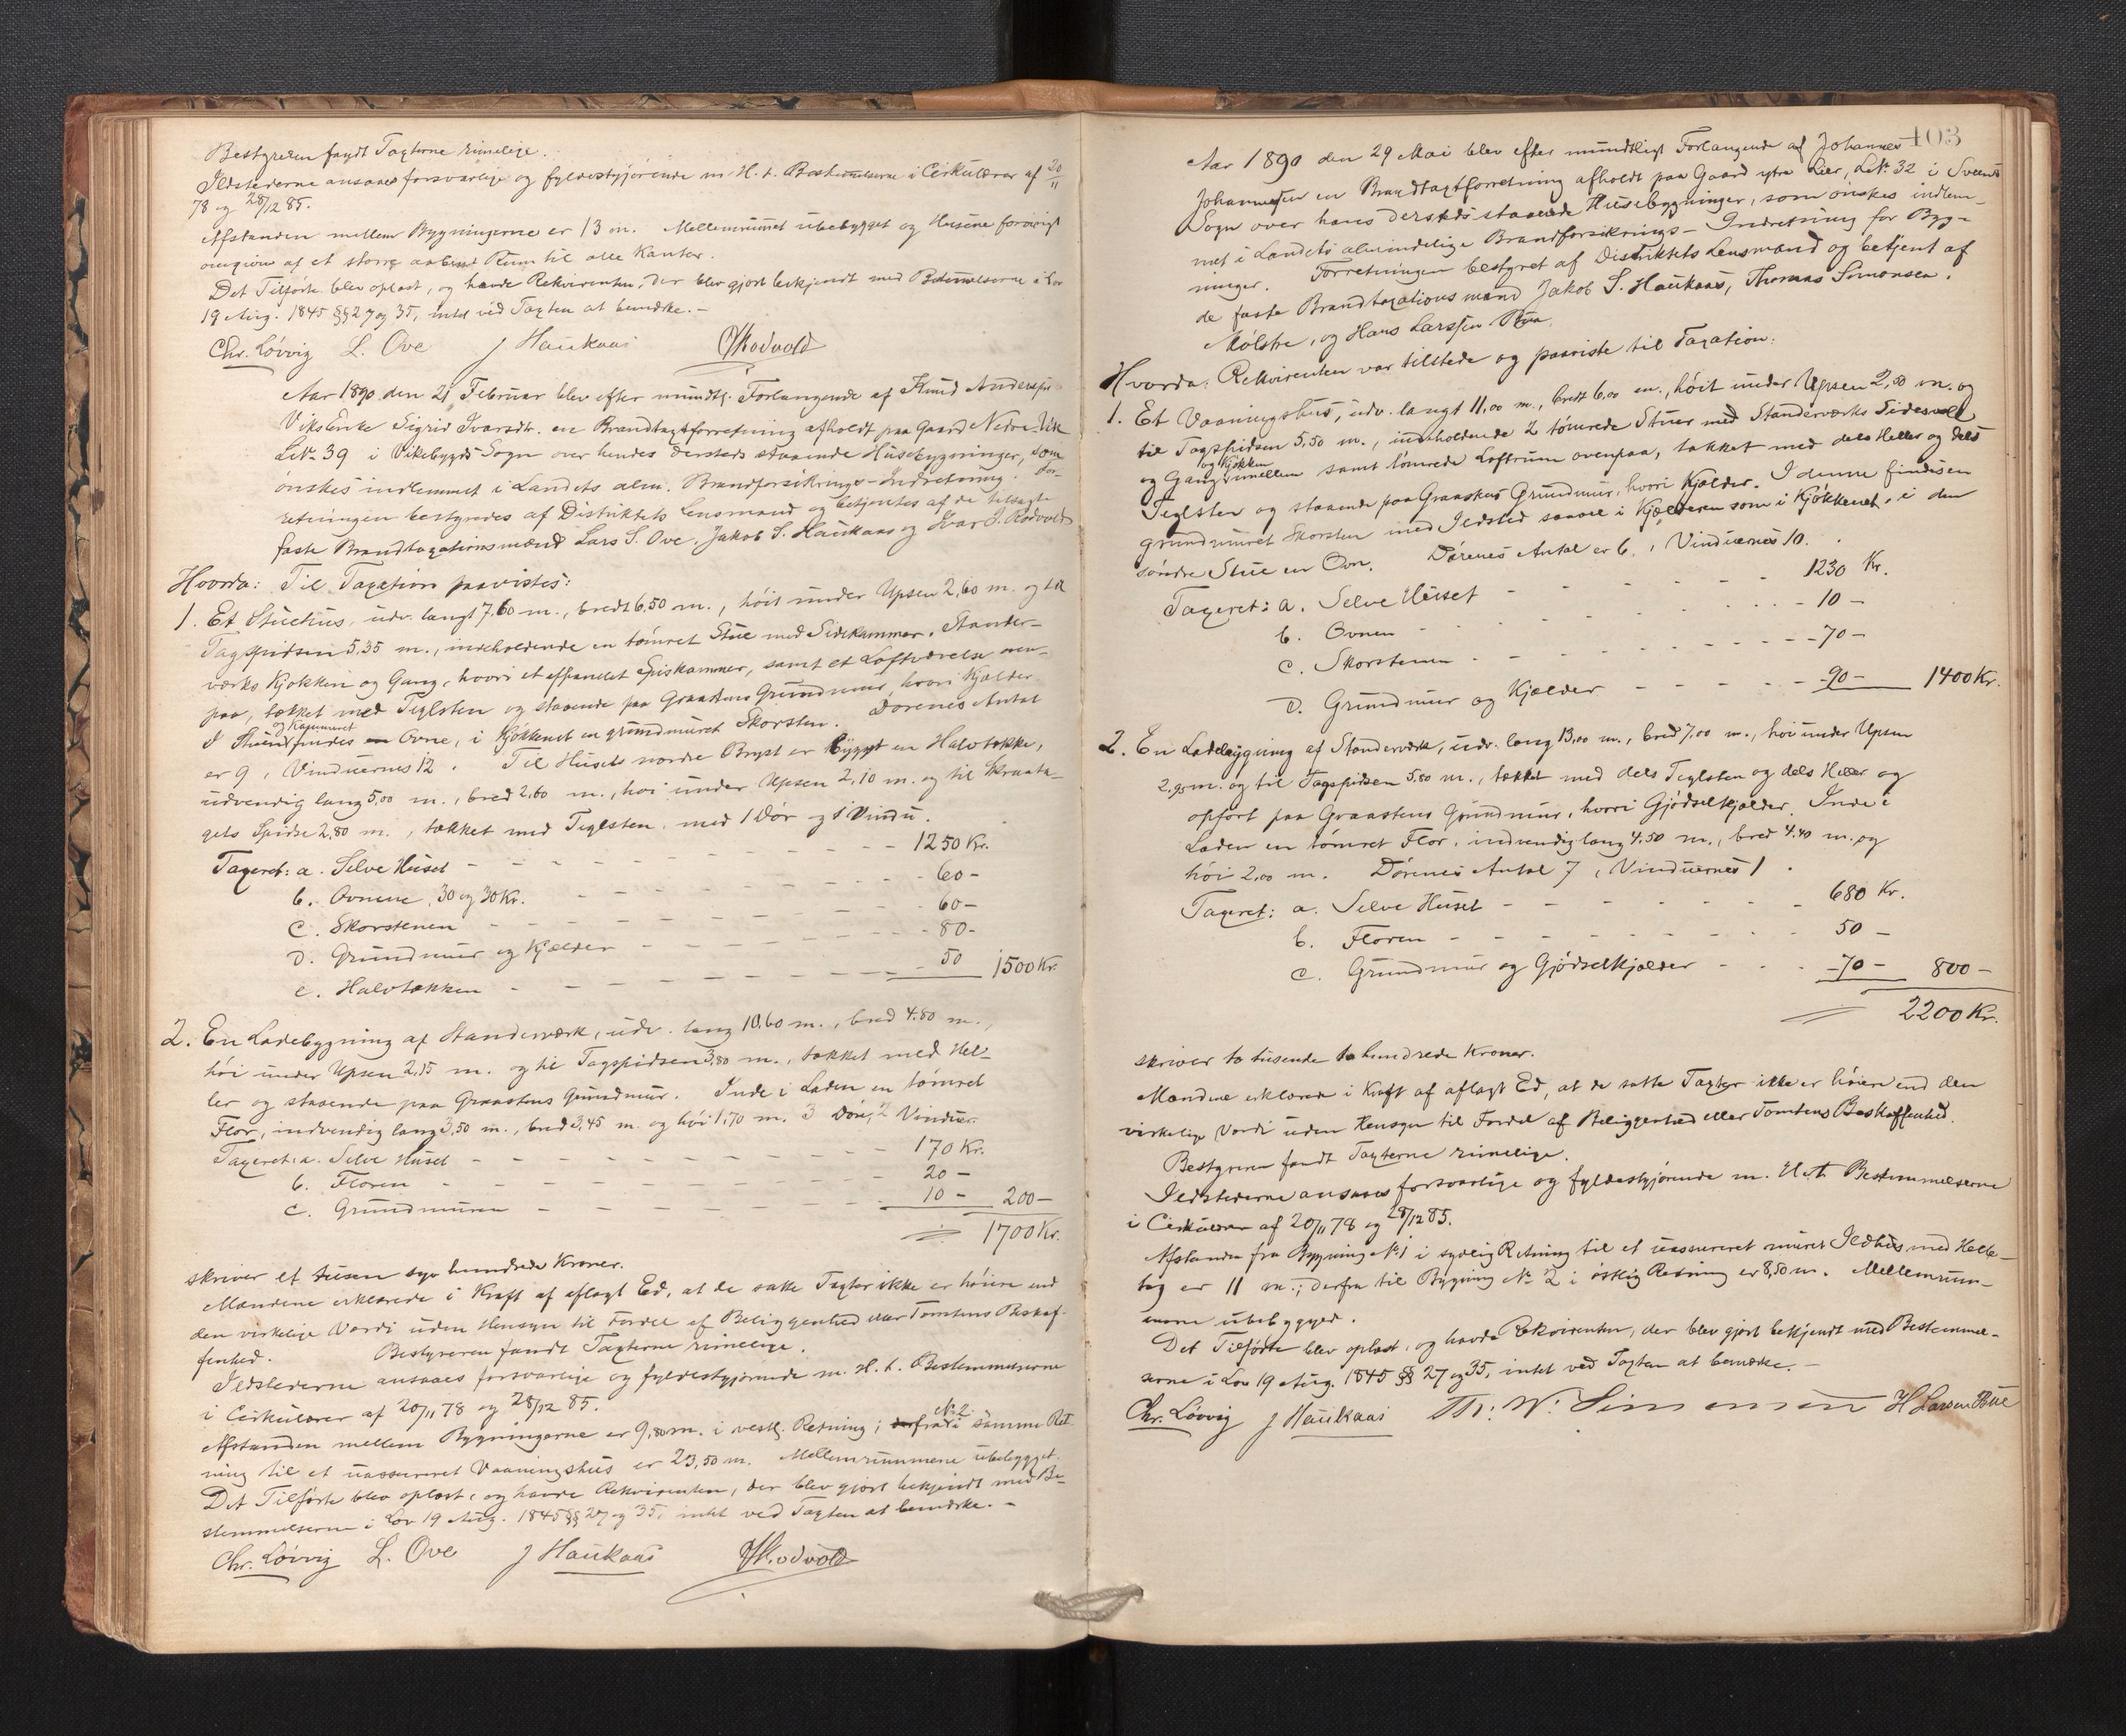 Bestyreren fandt Taxterne rimelige.
Ildstederne ansaaes forsvarlige og fyldestgjørende m. H. t. Bestemmelserne i Cirkulærer af 20/11
78 og 28/12 85.
Afstanden mellem Bygningerne er 13 m. Mellemrummet ubebygget og Husene forøvrigt
omgivne af et større aabent Rum til alle Kanter.
Det Tilførte blev oplæst, og havde Rekvirenten, der blev gjort bekjendt med Bestemmelserne i Lov
19 Aug. 1845 §§ 27 og 35, intet ved Taxten at bemærke. –
Chr. Løvvig L. Ove J Haukaas Rodvold
Aar 1890 den 21 Februar blev efter mundtl. Forlangende af Knud Anderss.
Viks Enke Sigrid Ivarsdtr. en Brandtaxtforretning afholdt paa Gaard Nedre Vik
L.Nr. 39 i Vikebygds Sogn over hendes dersteds staaende Husebygninger, som
ønskes indlemmet i Landets alm. Brandforsikrings-Indretning. For-
retningen bestyredes af Distriktets Lensmand og betjentes af de tilsagte
faste Brandtaxationsmænd Lars S. Ove, Jakob S. Haukaas og Ivar J. Rodvold
Hvorda: Til Taxation paavistes:
1. Et Stuehus, udv. langt 7,60 m., bredt 6,50 m., høit under Upsen 2,60 m. og til
Tagspidsen 5,35 m., indeholdende en tømret Stue med Sidekammer, Stander-
værks Kjøkken og Gang, hvori et afpanelet Spiskammer, samt et Loftværelse oven-
paa, tækket med Teglsten og staaende paa Graastens Grundmur, hvori Kjælder.
og Kammeret
I Stuen findes Ovne, i Kjøkkenet en grundmuret Skorsten. Dørenes Antal
er 9, Vinduernes 12. Til Husets nordre Bryst er bygget en Halvtække,
udvendig lang 5,00 m., bred 2,60 m., høi under Upsen 2,10 m. og til Skraata-
gets Spidse 2,80 m., tækket med Teglsten, med 1 Dør og 1 Vindu.
Taxeret: a. Selve Huset - - - 1250 Kr.
b. Ovnene, 30 og 30 Kr. - - - 60 -
c. Skorstenen - - - 60 -
d. Grundmur og Kjælder - - - 80 -
e. Halvtækken - - - 50 1500 Kr.
2. En Ladebygning af Standerværk, udv. lang 10,60 m., bred 4,80 m.,
høi under Upsen 2,15 m. og til Tagspidsen 3,80 m., tækket med Hel-
ler og staaende paa Graastens Grundmur. Inde i Laden en tømret
Flor, indvendig lang 3,50 m., bred 3,45 m. og høi 1,70 m. 3 Døre, 2 Vinduer.
Taxeret: a. Selve Huset - - - 170 Kr.
b. Floren - - - 20 -
c. Grundmuren - - - 10 - 200 -
1700 Kr.
skriver et tusen syv hundrede Kroner.
Mændene erklærede i Kraft af aflagt Ed, at de satte Taxter ikke er høiere end
den virkelige Værdi uden Hensyn til Fordel af Beliggenhed eller Tomtens Beskaf-
fenhed. Bestyreren fandt Taxterne rimelige.
Ildstederne ansaaes forsvarlige og fyldestgjørende m. H. t. Bestemmelserne
i Cirkulærer af 20/11 78 og 28/12 85.
No 2
Afstanden mellem Bygningerne er 9,80 m. i vestl. Retning; fra i samme Ret-
ning til et uassureret Vaaningshus er 23,50 m. Mellemrummene ubebygget.
Det Tilførte blev oplæst, og havde Rekvirenten, der blev gjort bekjendt med Be-
stemmelserne i Lov 19 Aug. 1845 §§ 27 og 35, intet ved Taxten at bemærke. –
Chr. Løvvig L. Ove J Haukaas Rodvold
403
Aar 1890 den 29 Mai blev efter mundtligt Forlangende af Johannes
Johannessen en Brandtaxtforretning afholdt paa Gaard ytre Lier, L.Nr. 32 i Sveens
Sogn over hans dersteds staaende Husebygninger, som ønskes indlem-
met i Landets almindelige Brandforsikrings-Indretning for Byg-
ninger. Forretningen bestyret af Distriktets Lensmand og betjent af
de faste Brandtaxationsmænd Jakob S. Haukaas, Thomas Simonsen
Mølstre, og Hans Larssen
Hvorda: Rekvirenten var tilstede og paaviste til Taxation:
1. Et Vaaningshus, udv. langt 11,00 m., bredt 6,00 m., høit under Upsen 2,50 m. og
til Tagspidsen 5,50 m., indeholdende 2 tømrede Stuer med Standerværks Sidesval
og Kjøkken
og Gang imellem samt tømrede Loftrum ovenpaa, tækket med dels Heller og dels
Teglsten og staaende paa Graastens Grundmur, hvori Kjælder. I denne findes en
grundmuret Skorsten med Ildsted saavel i Kjælderen som i Kjøkkenet, i den
søndre Stue en Ovn. Dørenes Antal er 6, Vinduernes 10.
Taxeret: a. Selve Huset - - - 1230 Kr.
b. Ovnen - - - 10 -
c. Skorstenen - - - 70 -
d. Grundmur og Kjælder - - - 90 - 1400 Kr.
2. En Ladebygning af Standerværk, udv. lang 13,00 m., bred 7,00 m., høi under Upsen
2,95 m. og til Tagspidsen 5,80 m., tækket med dels Teglsten og dels Heller og
opført paa Graastens Grundmur, hvori Gjødselkjælder. Inde i
Laden en tømret Flor, indvendig lang 4,50 m., bred 4,40 m. og
høi 2,00 m. Dørenes Antal 7, Vinduernes 1.
Taxeret: a. Selve Huset - - - 680 Kr.
b. Floren - - - 50 -
c. Grundmur og Gjødselkjælder - - - 70 - 800 -
2200 Kr.
skriver to tusende to hundrede Kroner.
Mændene erklærede i Kraft af aflagt Ed, at de satte Taxter ikke er høiere end den
virkelige Værdi uden Hensyn til Fordel af Beliggenhed eller Tomtens Beskaffenhed.
Bestyreren fandt Taxterne rimelige.
Ildstederne ansaaes forsvarlige og fyldestgjørende m. H. t. Bestemmelserne
i Cirkulærer af 20/11 78 og 28/12 85.
Afstanden fra Bygning No 1 i sydlig Retning til et uassureret muret Ildhus med Helle-
tag er 11 m.; derfra til Bygning No 2 i østlig Retning er 8,50 m. Mellemrum-
mene ubebygget.
Det Tilførte blev oplæst, og havde Rekvirenten, der blev gjort bekjendt med Bestemmel-
serne i Lov 19 Aug. 1845 §§ 27 og 35, intet ved Taxten at bemærke. –
Chr. Løvvig J Haukaas Th: W: Simonsen H Larsen